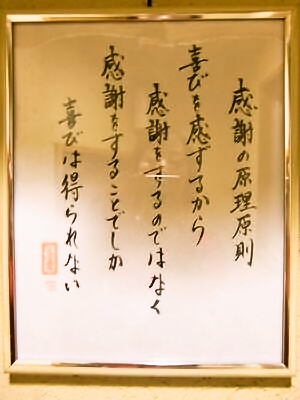 感謝の原理原則
喜びを感ずるから
感謝をするのではなく
感謝をすることでしか
喜びは得られない